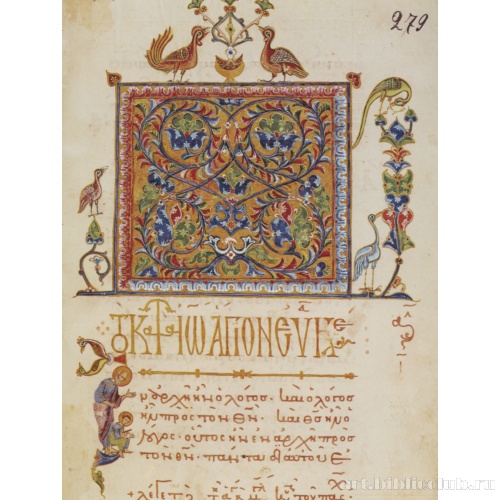 279
ΤΟ ΚΑΤ ΙΩ ΑΓΙΟΝ ΕΥΑΓΓΕ
ἐν ἀρχῆι ἦν ὁ λόγος· καὶ ὁ λόγος
ἦν πρὸς τὸν θν· καὶ θς ἦν ὁ
λόγος· οὗτος ἦν ἐν ἀρχῆι πρὸς
τὸν θν· πάντα δι' αὐτοῦ ἐ
art.biblioclub.ru